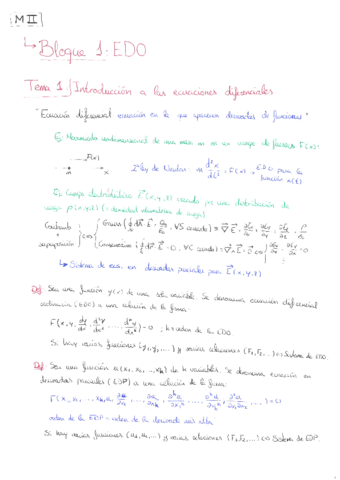 MII
↳ Bloque 1. EDO
Tema 1 Introducción a las ecuaciones diferenciales
"Ecuación diferencial ecuación en la que aparecen derivadas de funciones"
Ej: Movimiento unidimensional de una masa m en un campo de fuerzas F(x):
F(x)
m x 2ª ley de Newton: m d²x/dt² = F(x) → EDO para la función x(t)
Ej: Campo electrostático E(x,y,z) creado por una distribución de
carga ρ(x,y,z) (= densidad volumétrica de carga)
Coulomb + superposición
Gauss
Conservativo
↳ Sistema de ecu. en derivadas parciales para E(x,y,z)
Def: Sea una función y(x) de una sola variable. Se denomina ecuación diferencial
ordinaria (EDO) a una relación de la forma:
F(x, y, dy/dx, d²y/dx², ..., dⁿy/dxⁿ) = 0 ; n = orden de la EDO.
Si hay varias funciones (y₁, y₂, ...) y varias relaciones (F₁, F₂, ...) ⇔ Sistema de EDO.
Def: Sea una función u(x₁, x₂, ..., xₙ) de n variables. Se denomina ecuación en
derivadas parciales (EDP) a una relación de la forma:
orden de la EDP = orden de la derivada más alta.
Si hay varias funciones (u₁, u₂, ...) y varias relaciones (F₁, F₂, ...) ⇔ Sistema de EDP.